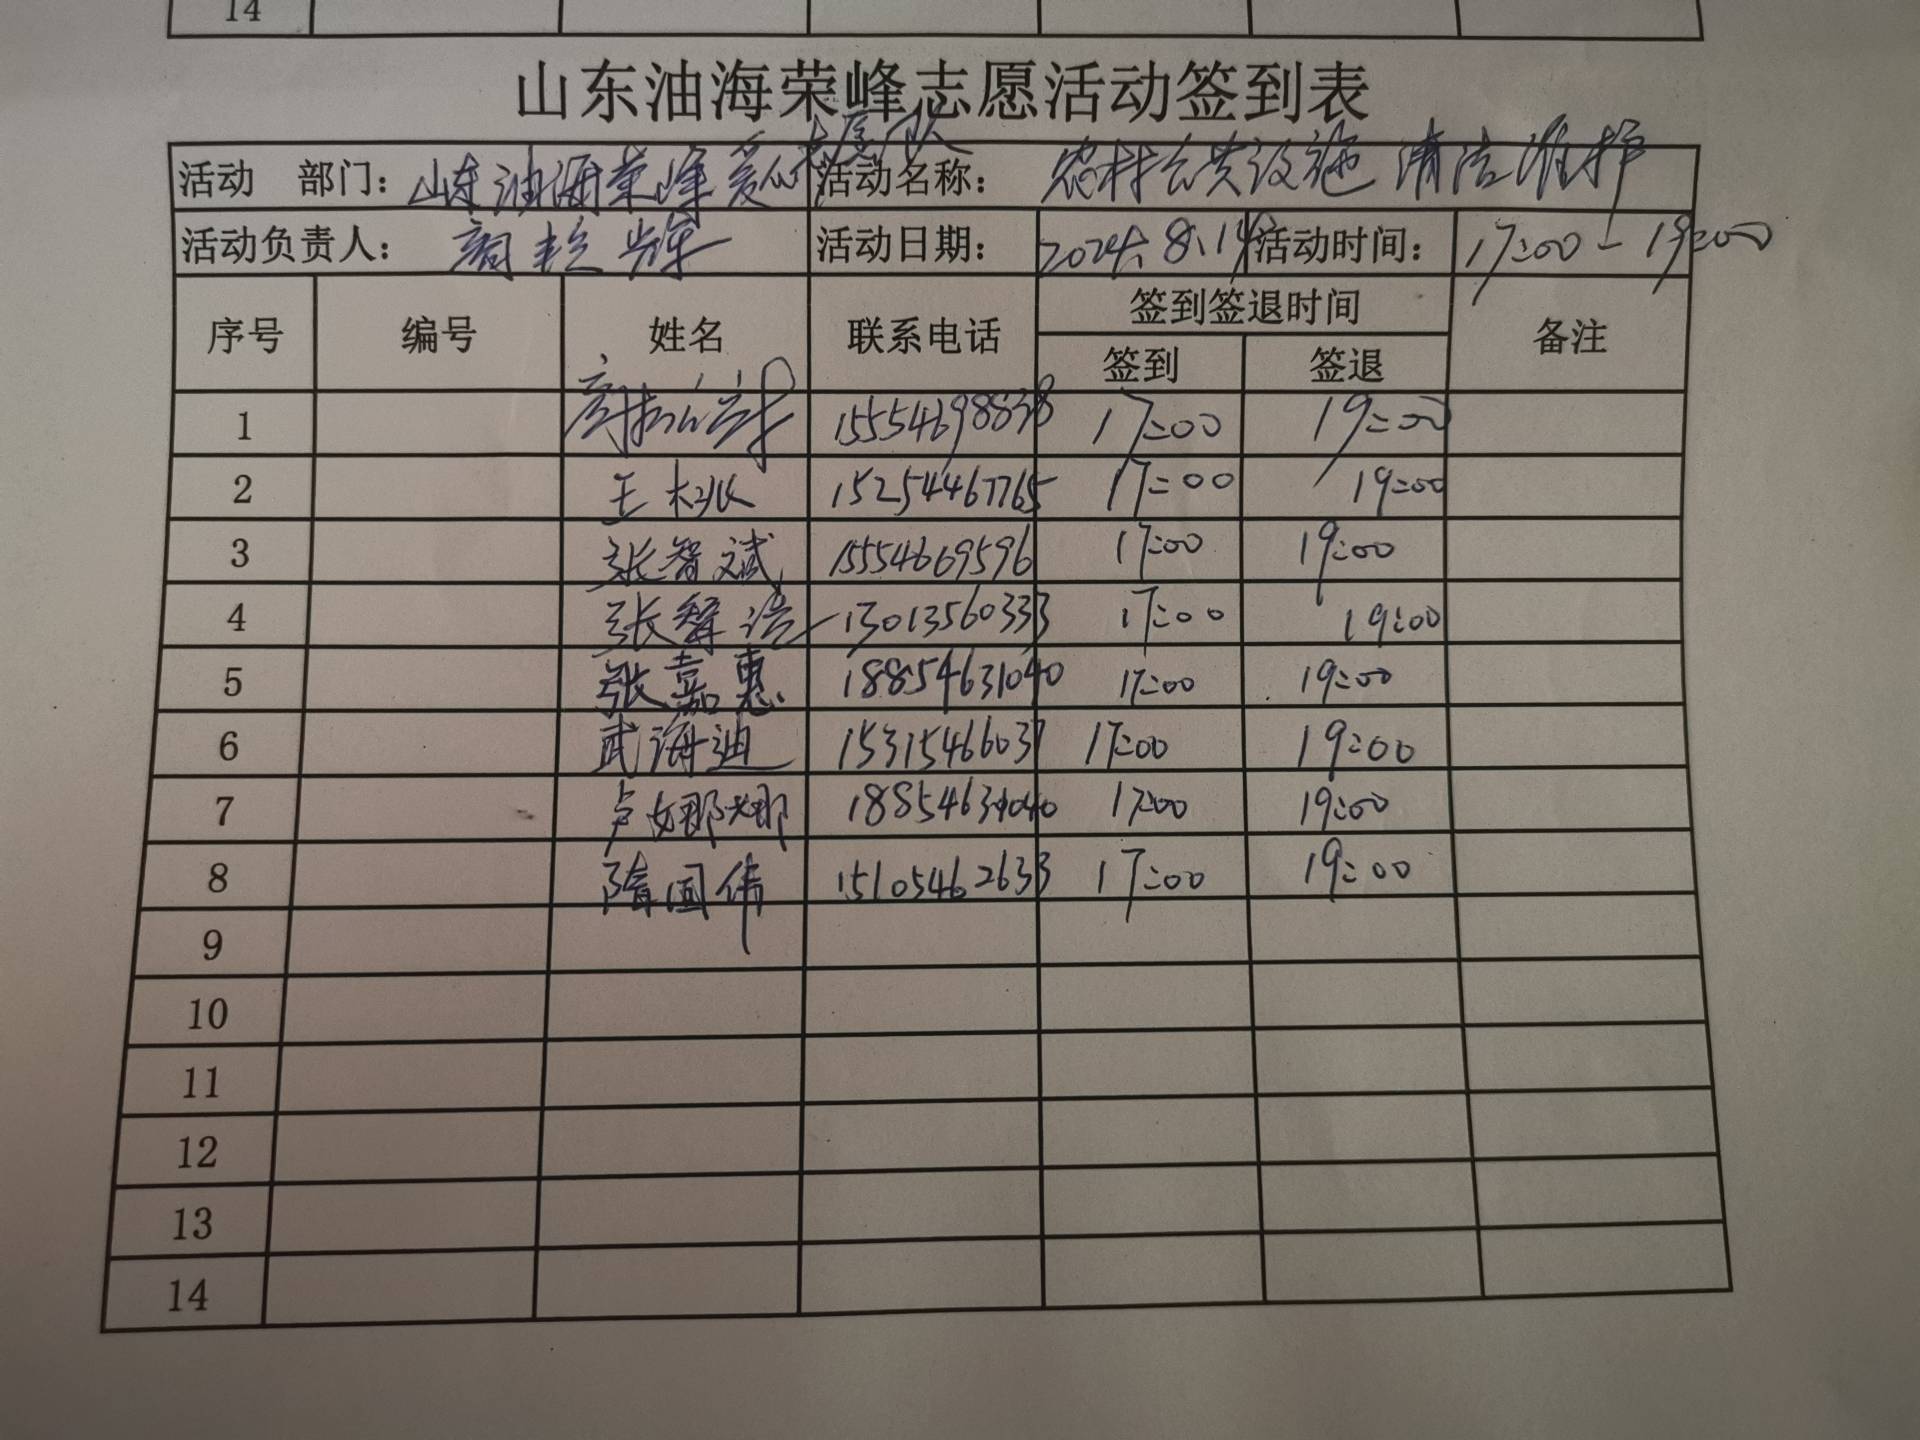 14
山东油海荣峰志愿活动签到表
活动 部门： 山东油海荣峰爱心志愿队 活动名称： 农村公共设施清洁维护
活动负责人： 活动日期： 2024.8.14 活动时间： 17:00-19:00
序号 编号 姓名 联系电话 签到签退时间 备注
签到 签退
1 15554698838 17:00 19:00
2 王 15254467765 17:00 19:00
3 张智斌 15554669596 17:00 19:00
4 张智浩 13013560333 17:00 19:00
5 张嘉惠 18854631040 17:00 19:00
6 武海迪 15315466037 17:00 19:00
7 卢娜娜 17:00 19:00
8 隋国伟 15105462633 17:00 19:00
9
10
11
12
13
14